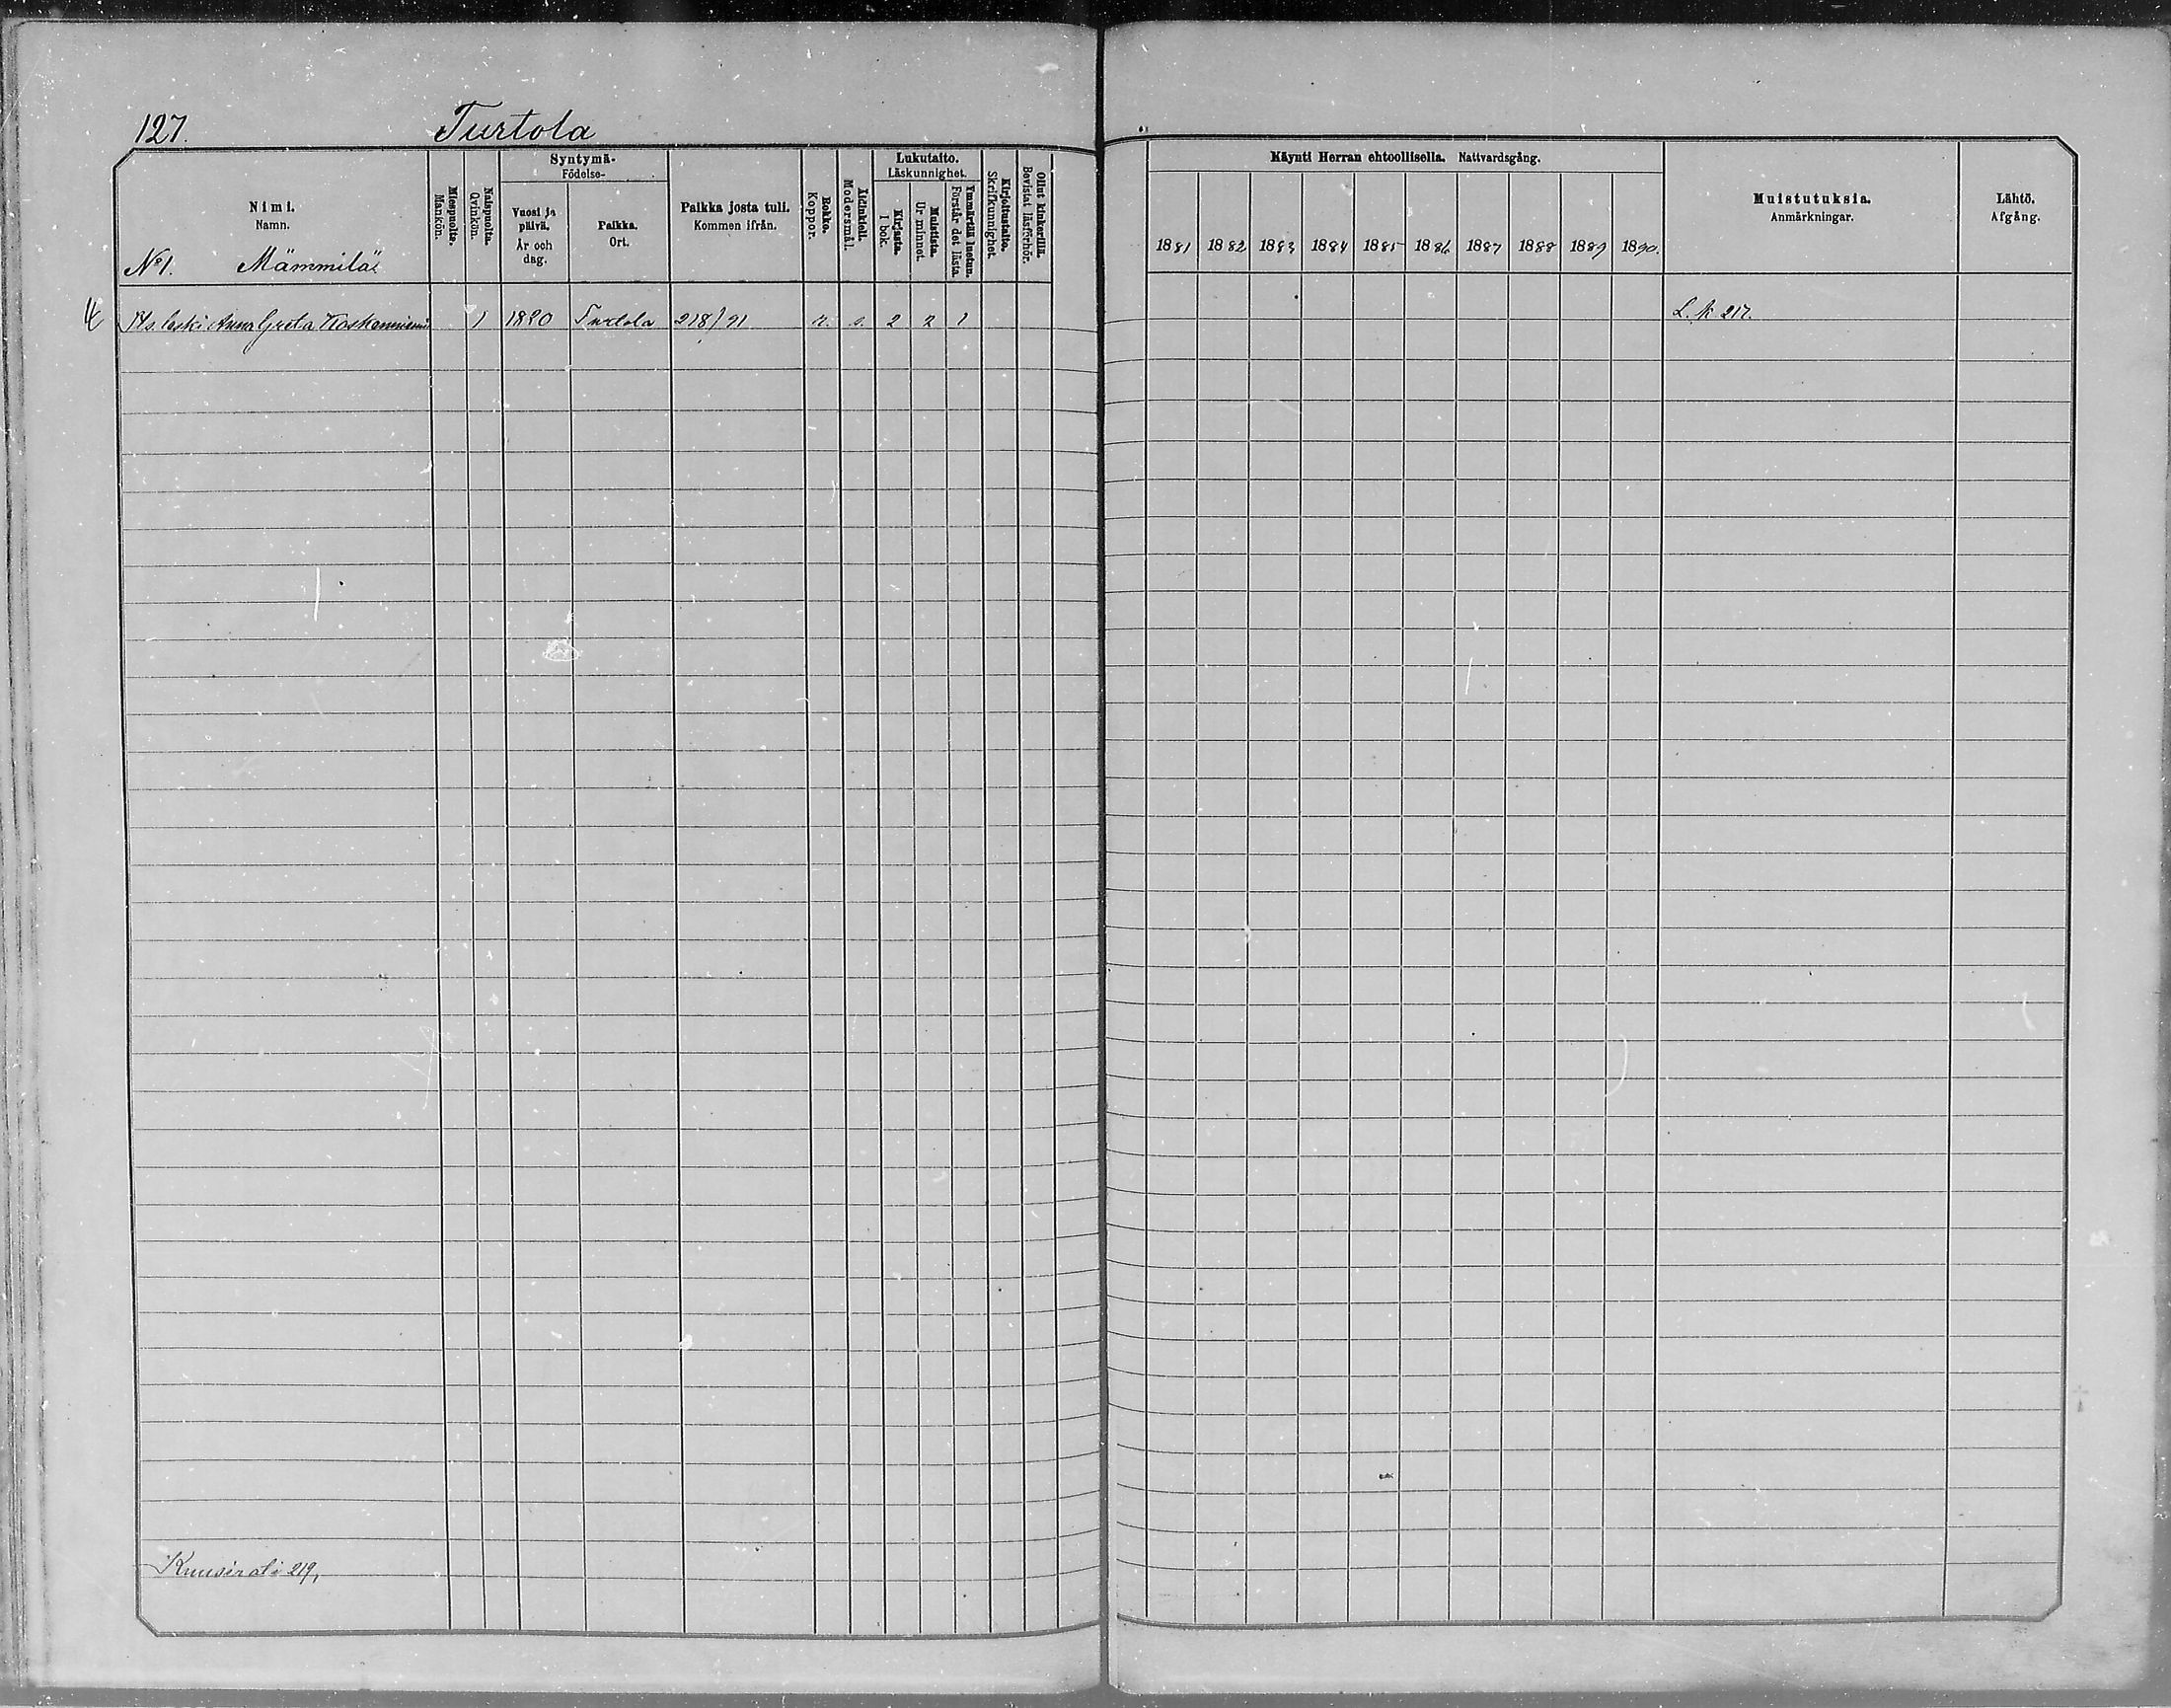 127.
Turtola
Nimi.
Namn.
No 1. Mämmilä
Miespuolta.
Mankön.
Naispuolta.
Qvinkön.
Syntymä-
Födelse-
Vuosi ja
päivä.
År och
dag.
Paikka.
Ort.
Paikka josta tuli.
Kommen ifrån.
Rokko.
Koppor.
Äidinkieli.
Modersmål.
Lukutaito.
Läskunnighet.
Kirjasta.
I bok.
Muistista.
Ur minnet.
Ymmärtää luetun.
Förstår det lästa.
Kirjoitustaito.
Skrifkunnighet.
Ollut kinkerillä.
Bevistat läsförhör.
Käynti Herran ehtoollisella. Nattvardsgång.
1881 1882 1883 1884 1885 1886 1887 1888 1889 1890.
Muistutuksia.
Anmärkningar.
Lähtö.
Afgång.
leski Anna Greta Koskenniemi 1 1820 Turtola 218/91 r. s. 2 2 1 L. k. 217.
219,